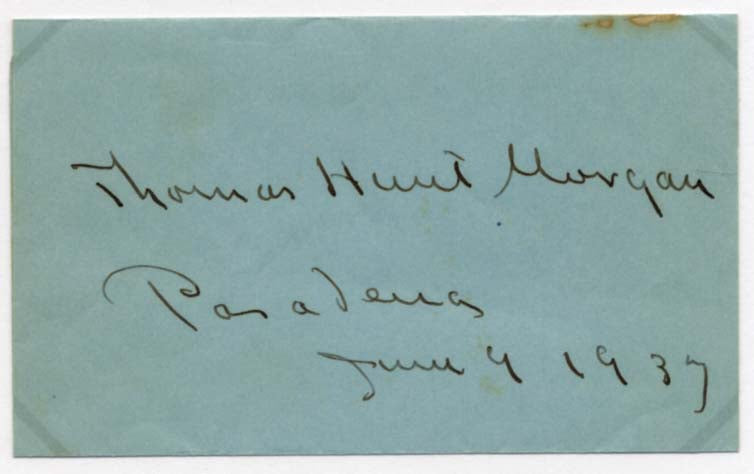 Thomas Hunt Morgan
Pasadena
June 9 1937